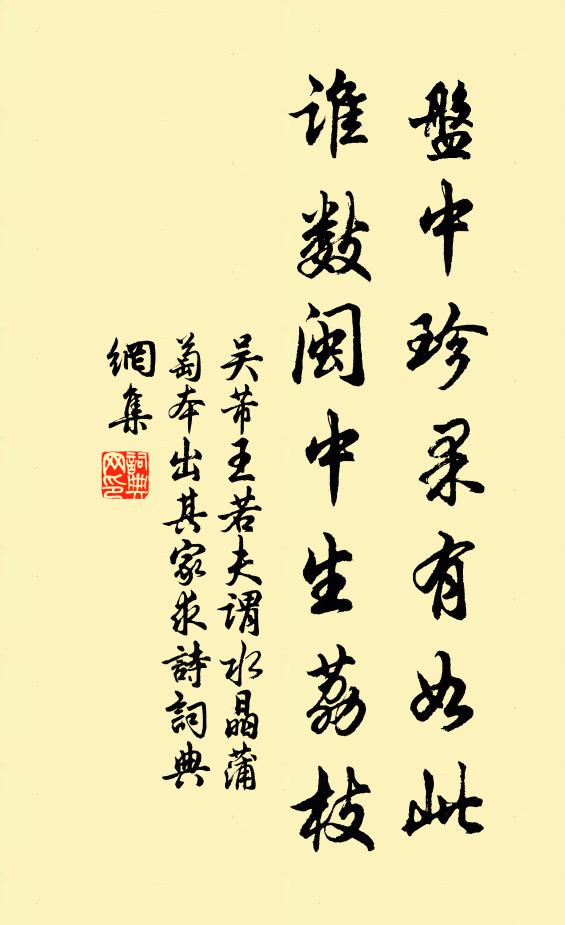 盤中珍果有如此
誰數閩中生荔枝
吴芾王若夫謂水晶蒲
萄本出其家求詩詞典
網集
詞典網印